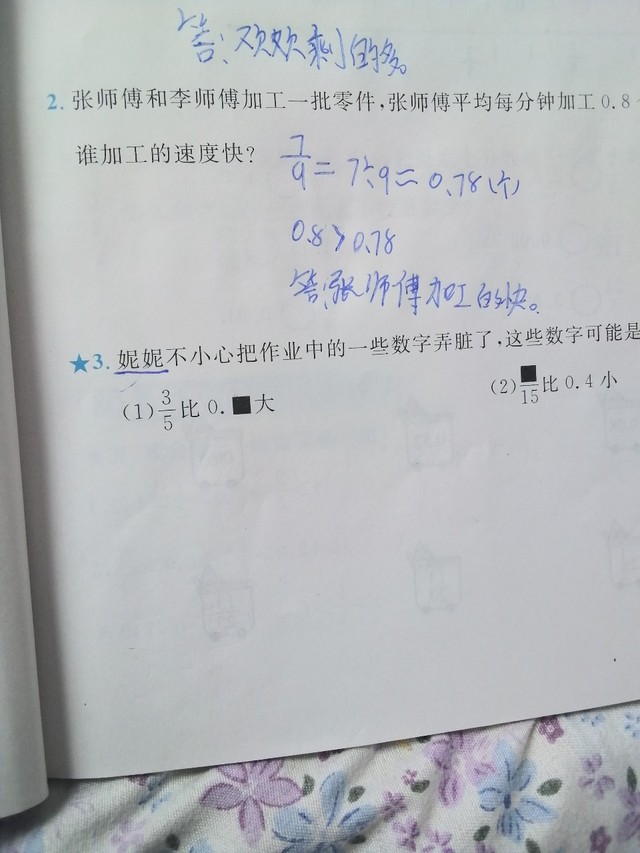 答：欢欢剩的多。
2. 张师傅和李师傅加工一批零件,张师傅平均每分钟加工0.8
谁加工的速度快?
7/9=7÷9≈0.78(个)
0.8>0.78
答:张师傅加工的快。
★3. 妮妮不小心把作业中的一些数字弄脏了,这些数字可能是
(1) 3/5 比 0.■大
(2) ■/15 比 0.4 小